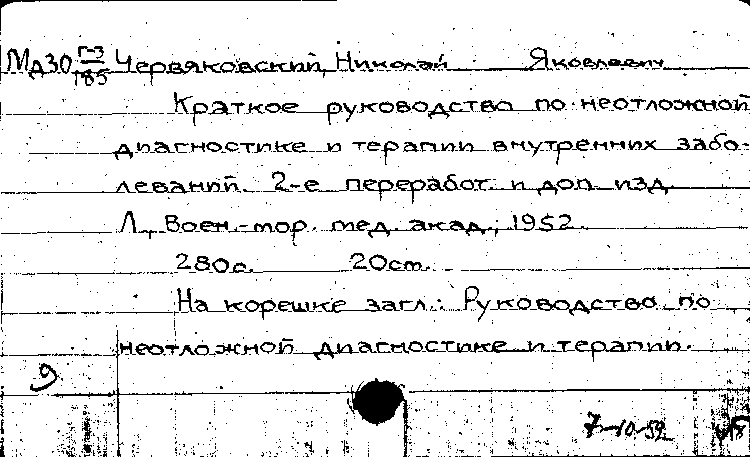 Мд30 Г-3/185 Червяковский, Николай Яковлевич
Краткое руководство по неотложной
диагностике и терапии внутренних забо-
леваний. 2-е переработ. и доп. изд.
Л., Воен.-мор. мед. акад., 1952.
280с. 20ст.
На корешке загл.: Руководство по
неотложной диагностике и терапии.
9
7-10-52